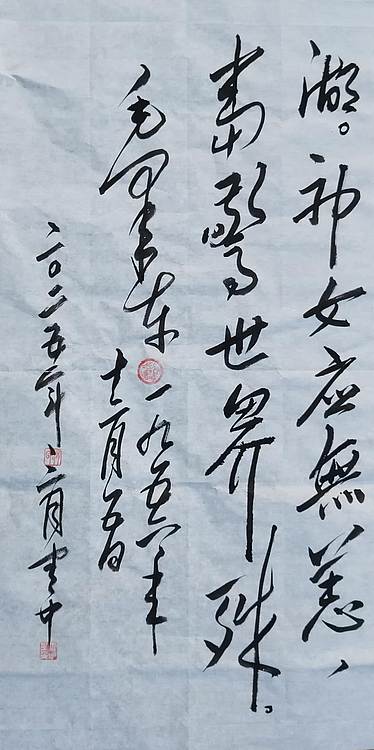 湖。神女应無恙、
當驚世界殊。
毛澤東 一九五六年
十二月五日
二〇二五年二月書